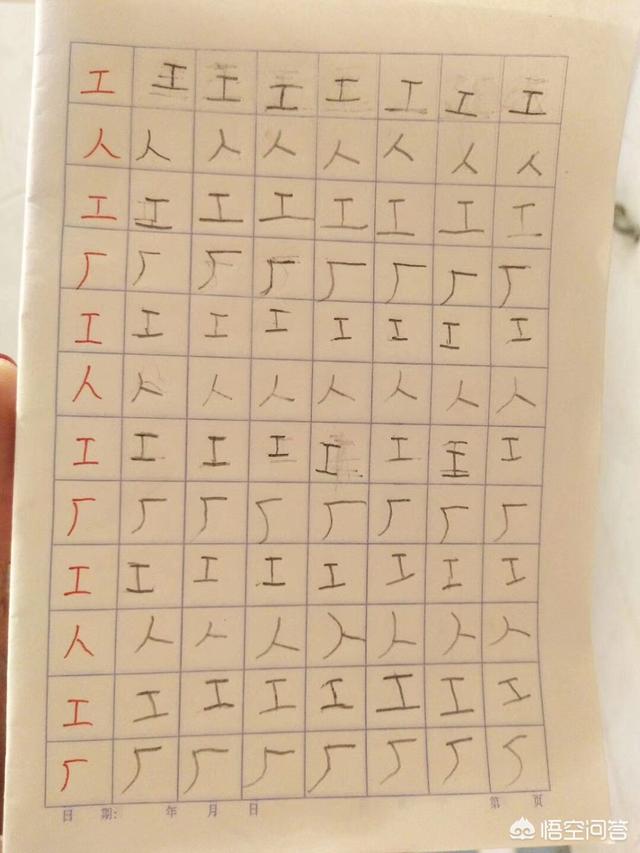 工 工 工 工 工 工 工 工
人 人 人 人 人 人 人 人
工 工 工 工 工 工 工 工
厂 厂 厂 厂 厂 厂 厂 厂
工 工 工 工 工 工 工 工
人 人 人 人 人 人 人 人
工 工 工 工 工 工 工 工
厂 厂 厂 厂 厂 厂 厂 厂
工 工 工 工 工 工 工 工
人 人 人 人 人 人 人 人
工 工 工 工 工 工 工 工
厂 厂 厂 厂 厂 厂 厂 厂
日 期: 年 月 日 第 页
悟空问答